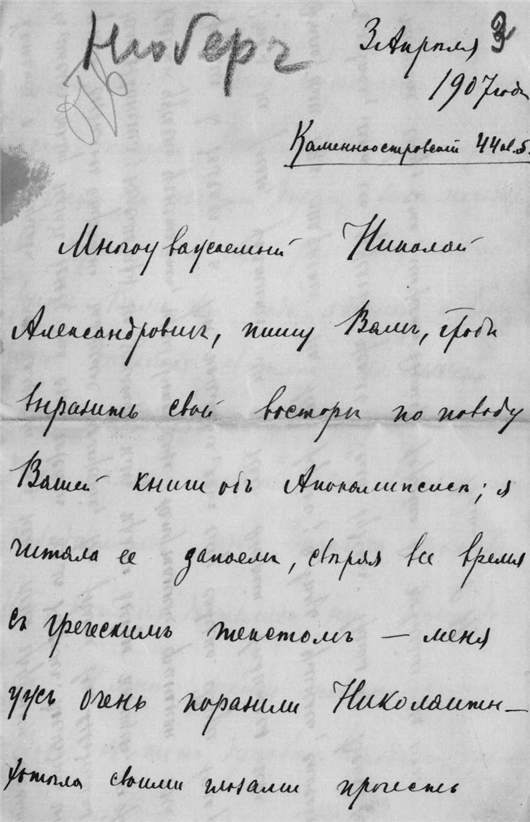 Нюберг
3 Апреля
1907 года
Каменноостровский 44 кв. 5.
Многоуважаемый Николай
Александровичъ, пишу Вамъ, чтобы
выразить свой восторгъ по поводу
Вашей книги объ Апокалипсисѣ; я
читала ее запоемъ, свѣряя все время
съ греческимъ текстомъ — меня
ужъ очень поразили Николаитн—
хотѣла своими глазами прочесть